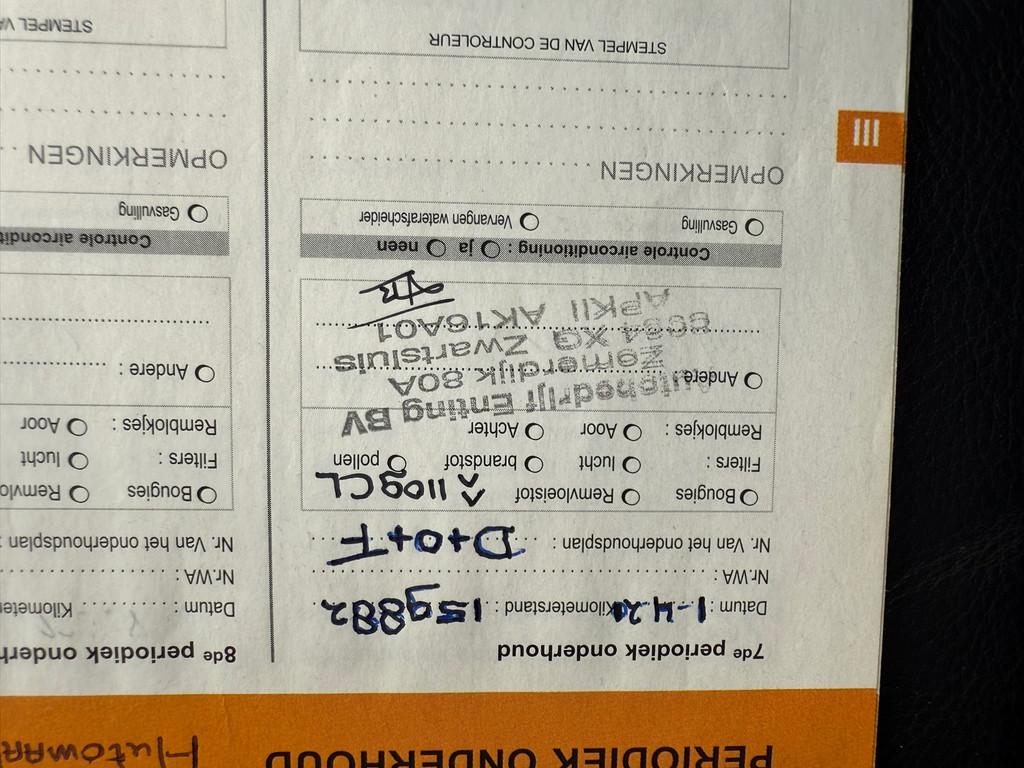 PERIODIEK ONDERHOUD
7de periodiek onderhoud
Datum : 1-4-20 Kilometerstand : 159882
Nr.WA :
Nr. Van het onderhoudsplan : D+O+F
Bougies Remvloeistof
Filters : lucht brandstof pollen
Remblokjes : Aoor Achter
Andere
Autobedrijf Enting BV
Zomerdijk 80A
8064 XG Zwartsluis
APKII AK16A01
Controle airconditioning : ja neen
Gasvulling Vervangen waterafscheider
OPMERKINGEN
STEMPEL VAN DE CONTROLEUR
III
8de periodiek onderh
Datum : Kilometer
Nr.WA :
Nr. Van het onderhoudsplan :
Bougies Remvlo
Filters : lucht
Remblokjes : Aoor
Andere :
Controle aircondit
Gasvulling
OPMERKINGEN
STEMPEL VA